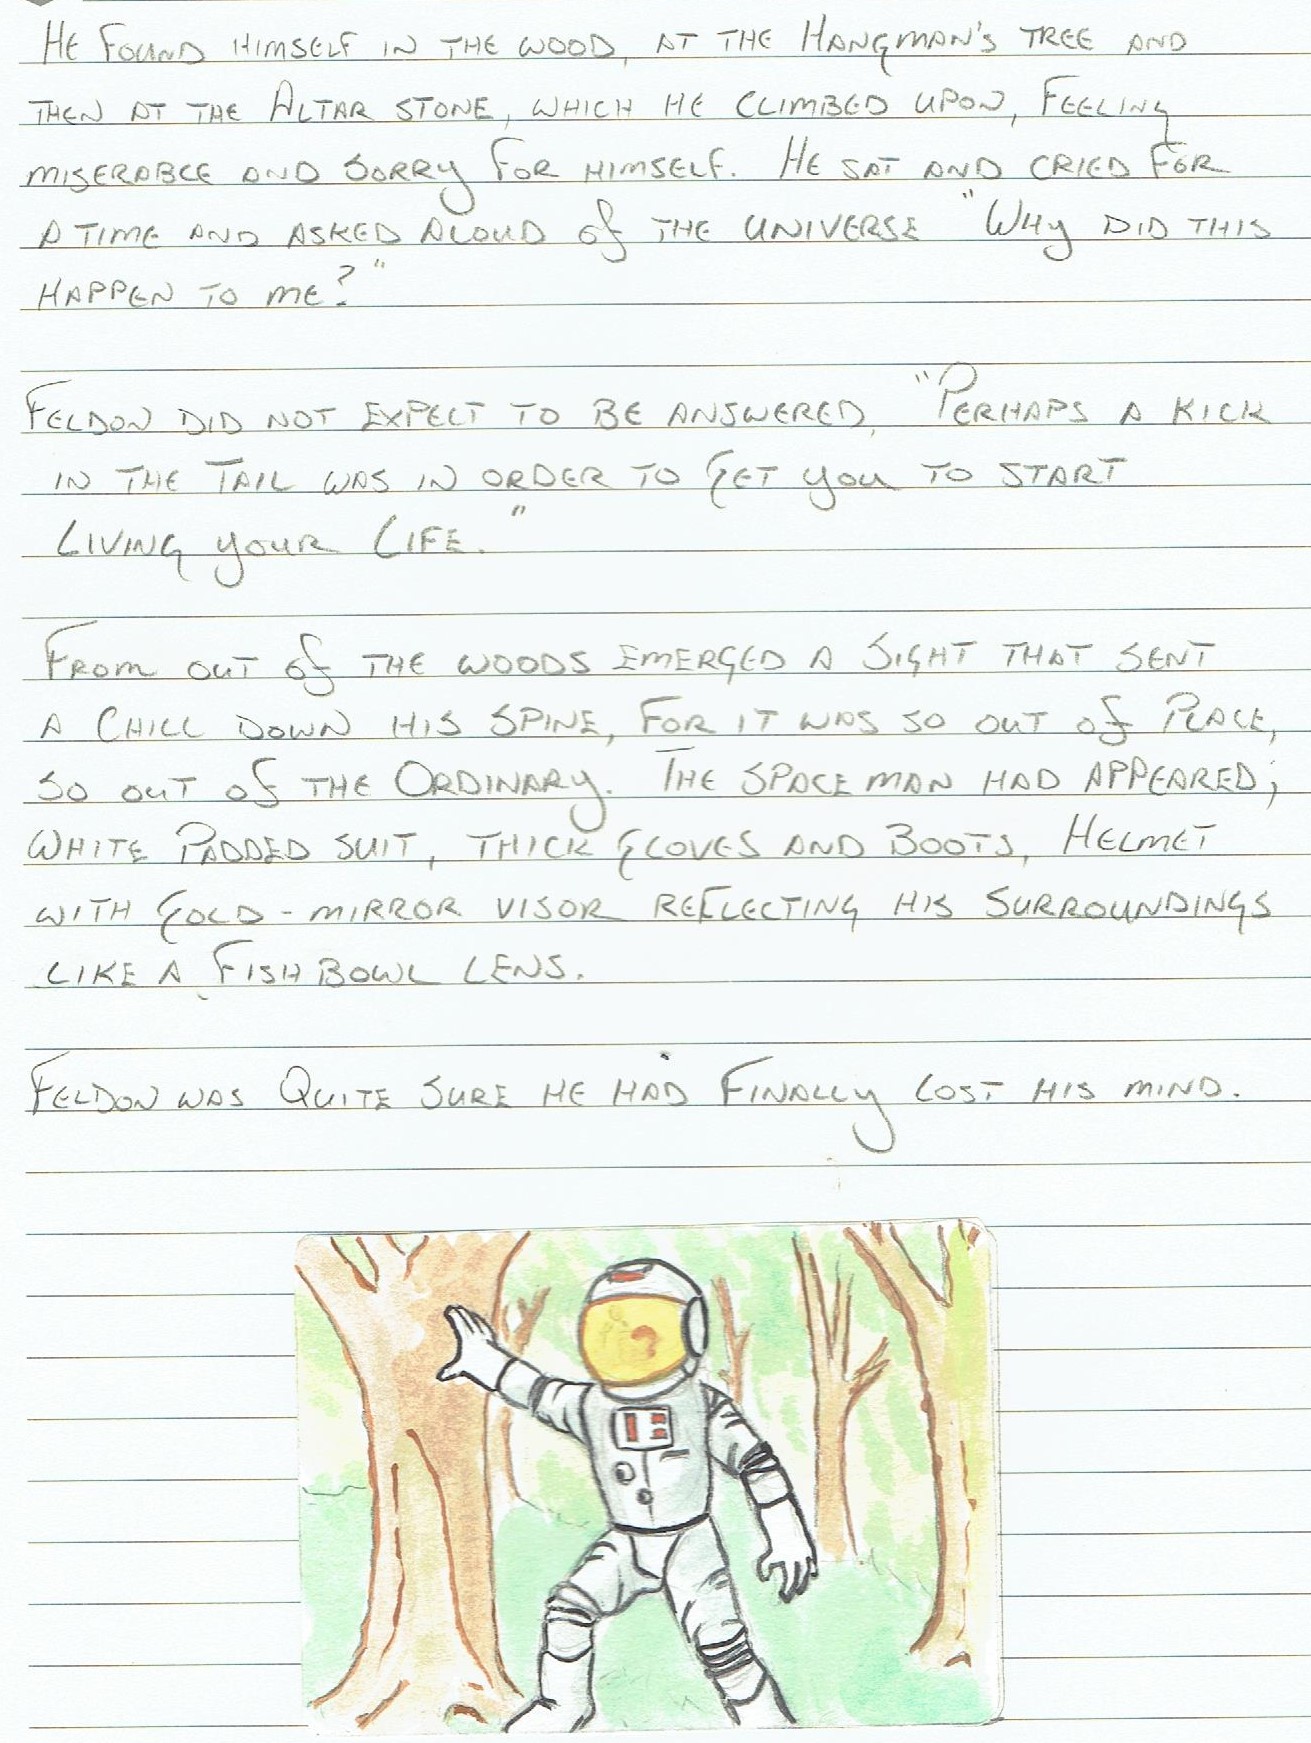 He found himself in the wood, at the Hangman's tree and
then at the Altar stone, which he climbed upon, feeling
miserable and sorry for himself. He sat and cried for
a time and asked aloud of the universe "Why did this
happen to me?"
Feldon did not expect to be answered, "Perhaps a kick
in the tail was in order to get you to start
living your life."
From out of the woods emerged a sight that sent
a chill down his spine, for it was so out of place,
so out of the ordinary. The space man had appeared;
white padded suit, thick gloves and boots, helmet
with gold-mirror visor reflecting his surroundings
like a fish bowl lens.
Feldon was quite sure he had finally lost his mind.